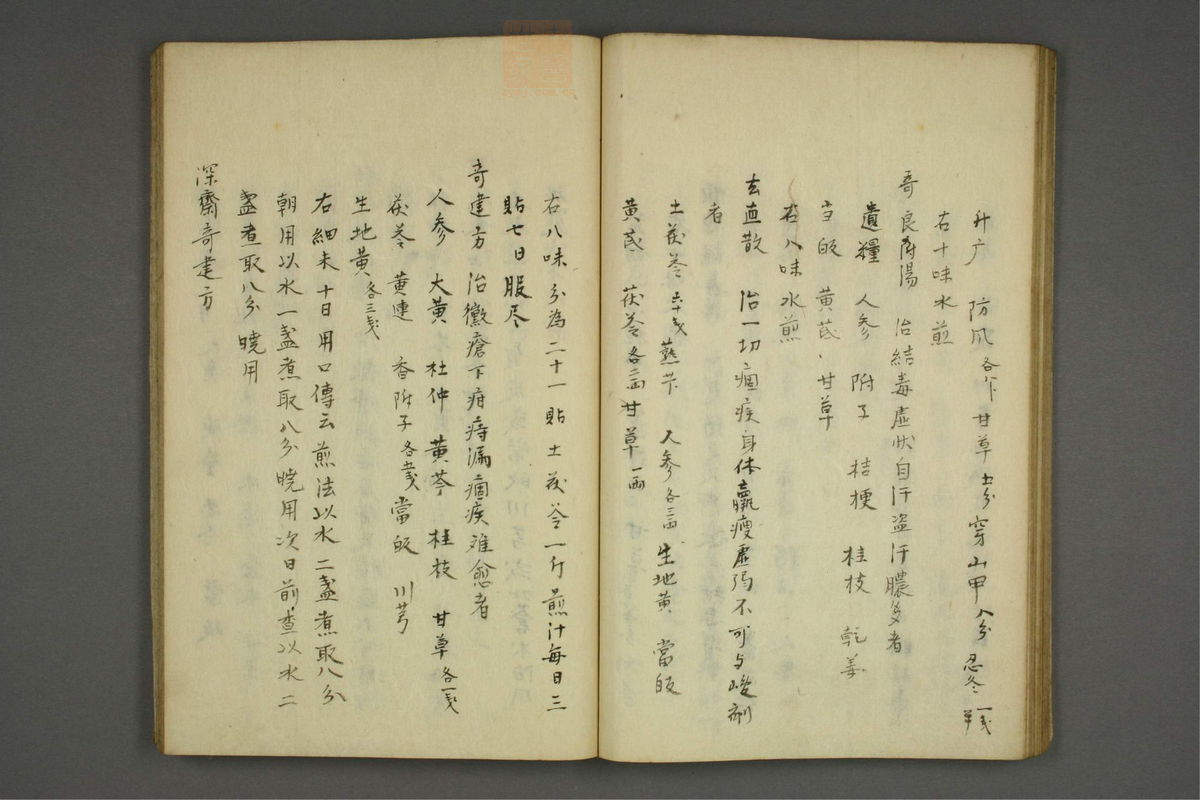 升广 防风各 甘草 穿山甲八分 忍冬一戔
右十味水煎
奇良附湯 治結毒虚状自汗盗汗膿多者
遺糧 人参 附子 桔梗 桂枝 乾姜
当皈 黄芪 甘草
右八味水煎
去直散 治一切痼疾身体羸瘦虚弱不可与峻剤
者
土茯苓六十戔 人参各三両 生地黄 當皈
黄芪 茯苓各二両 甘草一両
右八味分為二十一貼土茯苓一斤煎汁毎日三
貼七日服尽
奇建方 治黴瘡下疳痔漏痼疾难愈者
人参 大黄 杜仲 黄芩 桂枝 甘草各一戔
茯苓 黄連 香附子各戔 當皈 川芎
生地黄各三戔
右細末十日用口傳云煎法以水二盞煮取八分
朝用以水一盞煮取八分晩用次日前查以水二
盞煮取八分晩用
深齋奇建方